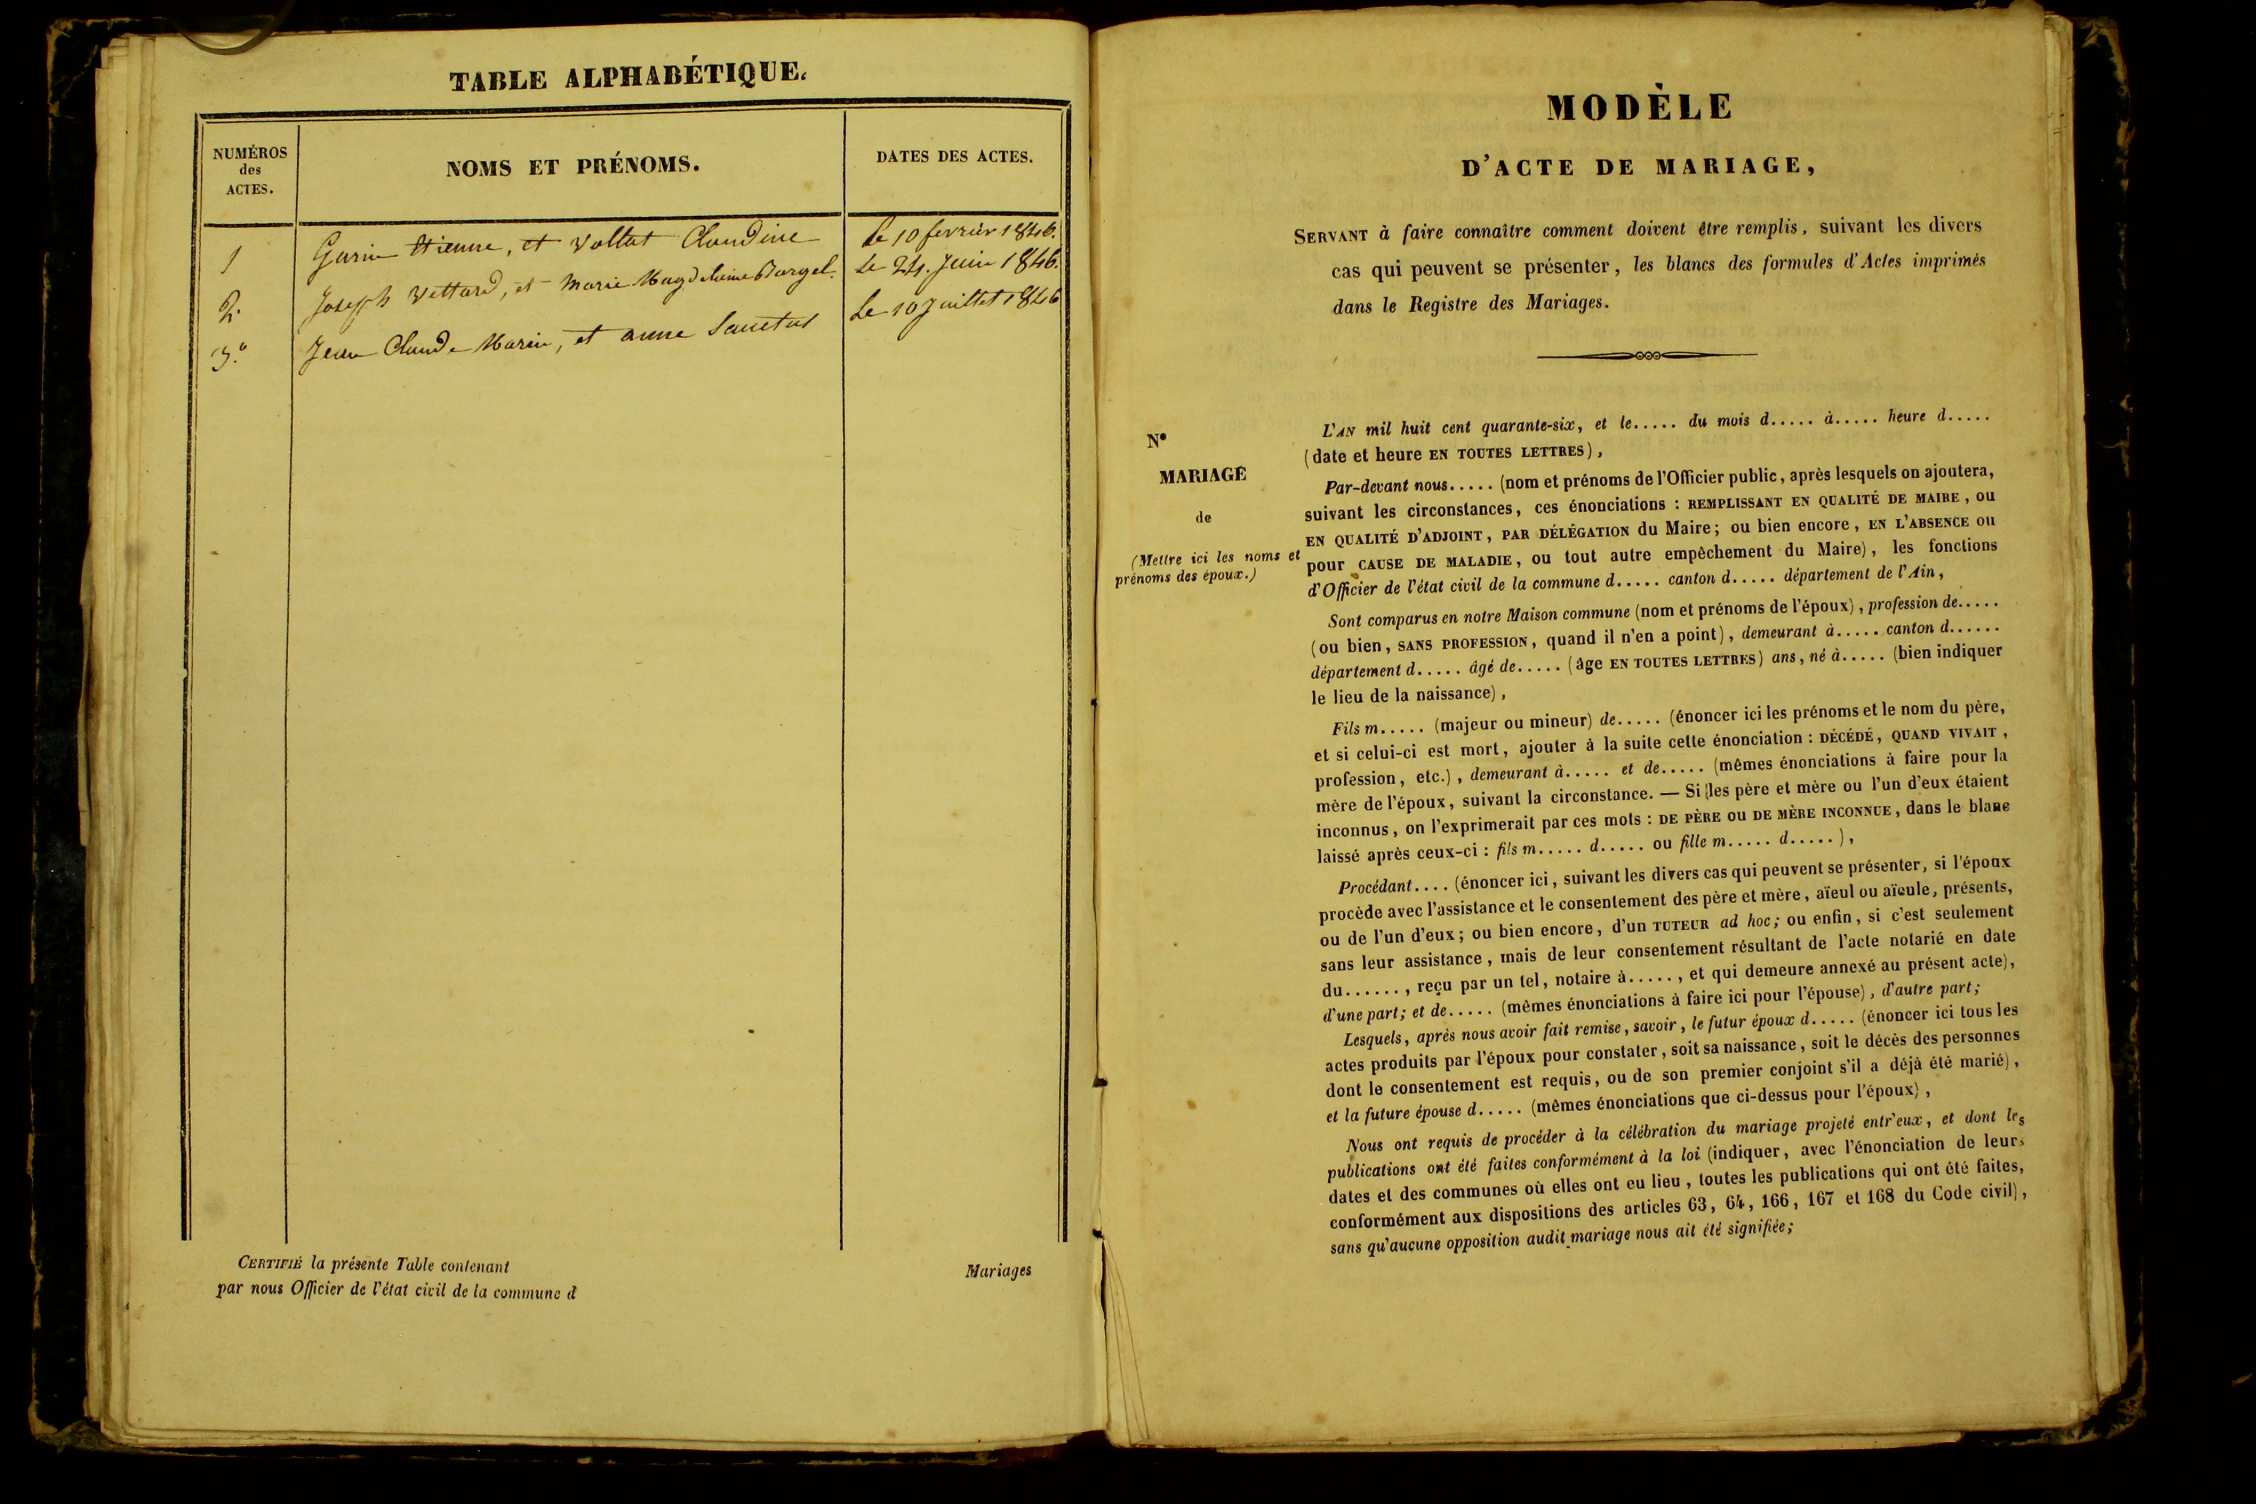 TABLE ALPHABÉTIQUE.
NUMÉROS
des
ACTES.
NOMS ET PRÉNOMS.
DATES DES ACTES.
1 Garin Etienne, et Vollat Claudine le 10 fevrier 1846.
2. Joseph Vettard, et Marie Magdelaine Le 24. Juin 1846.
3.° Jean Claude Marin, et anne Le 10 Juillet 1846
CERTIFIÉ la présente Table contenant Mariages
par nous Officier de l'état civil de la commune d
MODÈLE
D'ACTE DE MARIAGE,
SERVANT à faire connaître comment doivent être remplis, suivant les divers
cas qui peuvent se présenter, les blancs des formules d'Actes imprimés
dans le Registre des Mariages.
N°
MARIAGE
de
(Mettre ici les noms et
prénoms des époux.)
L'AN mil huit cent quarante-six, et le..... du mois d..... à..... heure d.....
(date et heure EN TOUTES LETTRES),
Par-devant nous..... (nom et prénoms de l'Officier public, après lesquels on ajoutera,
suivant les circonstances, ces énonciations : REMPLISSANT EN QUALITÉ DE MAIRE, ou
EN QUALITÉ D'ADJOINT, PAR DÉLÉGATION du Maire; ou bien encore, EN L'ABSENCE ou
pour CAUSE DE MALADIE, ou tout autre empêchement du Maire), les fonctions
d'Officier de l'état civil de la commune d..... canton d..... département de l'Ain,
Sont comparus en notre Maison commune (nom et prénoms de l'époux), profession de.....
(ou bien, SANS PROFESSION, quand il n'en a point), demeurant à..... canton d......
département d..... âgé de..... (âge EN TOUTES LETTRES) ans, né à..... (bien indiquer
le lieu de la naissance),
Fils m..... (majeur ou mineur) de..... (énoncer ici les prénoms et le nom du père,
et si celui-ci est mort, ajouter à la suite cette énonciation : DÉCÉDÉ, QUAND VIVAIT,
profession, etc.), demeurant à..... et de..... (mêmes énonciations à faire pour la
mère de l'époux, suivant la circonstance. — Si les père et mère ou l'un d'eux étaient
inconnus, on l'exprimerait par ces mots : DE PÈRE ou DE MÈRE INCONNUE, dans le blanc
laissé après ceux-ci : fils m..... d..... ou fille m..... d.....),
Procédant.... (énoncer ici, suivant les divers cas qui peuvent se présenter, si l'époux
procède avec l'assistance et le consentement des père et mère, aïeul ou aïeule, présents,
ou de l'un d'eux; ou bien encore, d'un TUTEUR ad hoc; ou enfin, si c'est seulement
sans leur assistance, mais de leur consentement résultant de l'acte notarié en date
du......, reçu par un tel, notaire à....., et qui demeure annexé au présent acte),
d'une part; et de..... (mêmes énonciations à faire ici pour l'épouse), d'autre part;
Lesquels, après nous avoir fait remise, savoir, le futur époux d..... (énoncer ici tous les
actes produits par l'époux pour constater, soit sa naissance, soit le décès des personnes
dont le consentement est requis, ou de son premier conjoint s'il a déjà été marié),
et la future épouse d..... (mêmes énonciations que ci-dessus pour l'époux),
Nous ont requis de procéder à la célébration du mariage projeté entr'eux, et dont les
publications ont été faites conformément à la loi (indiquer, avec l'énonciation de leurs
dates et des communes où elles ont eu lieu, toutes les publications qui ont été faites,
conformément aux dispositions des articles 63, 64, 166, 167 et 168 du Code civil),
sans qu'aucune opposition audit mariage nous ait été signifiée;